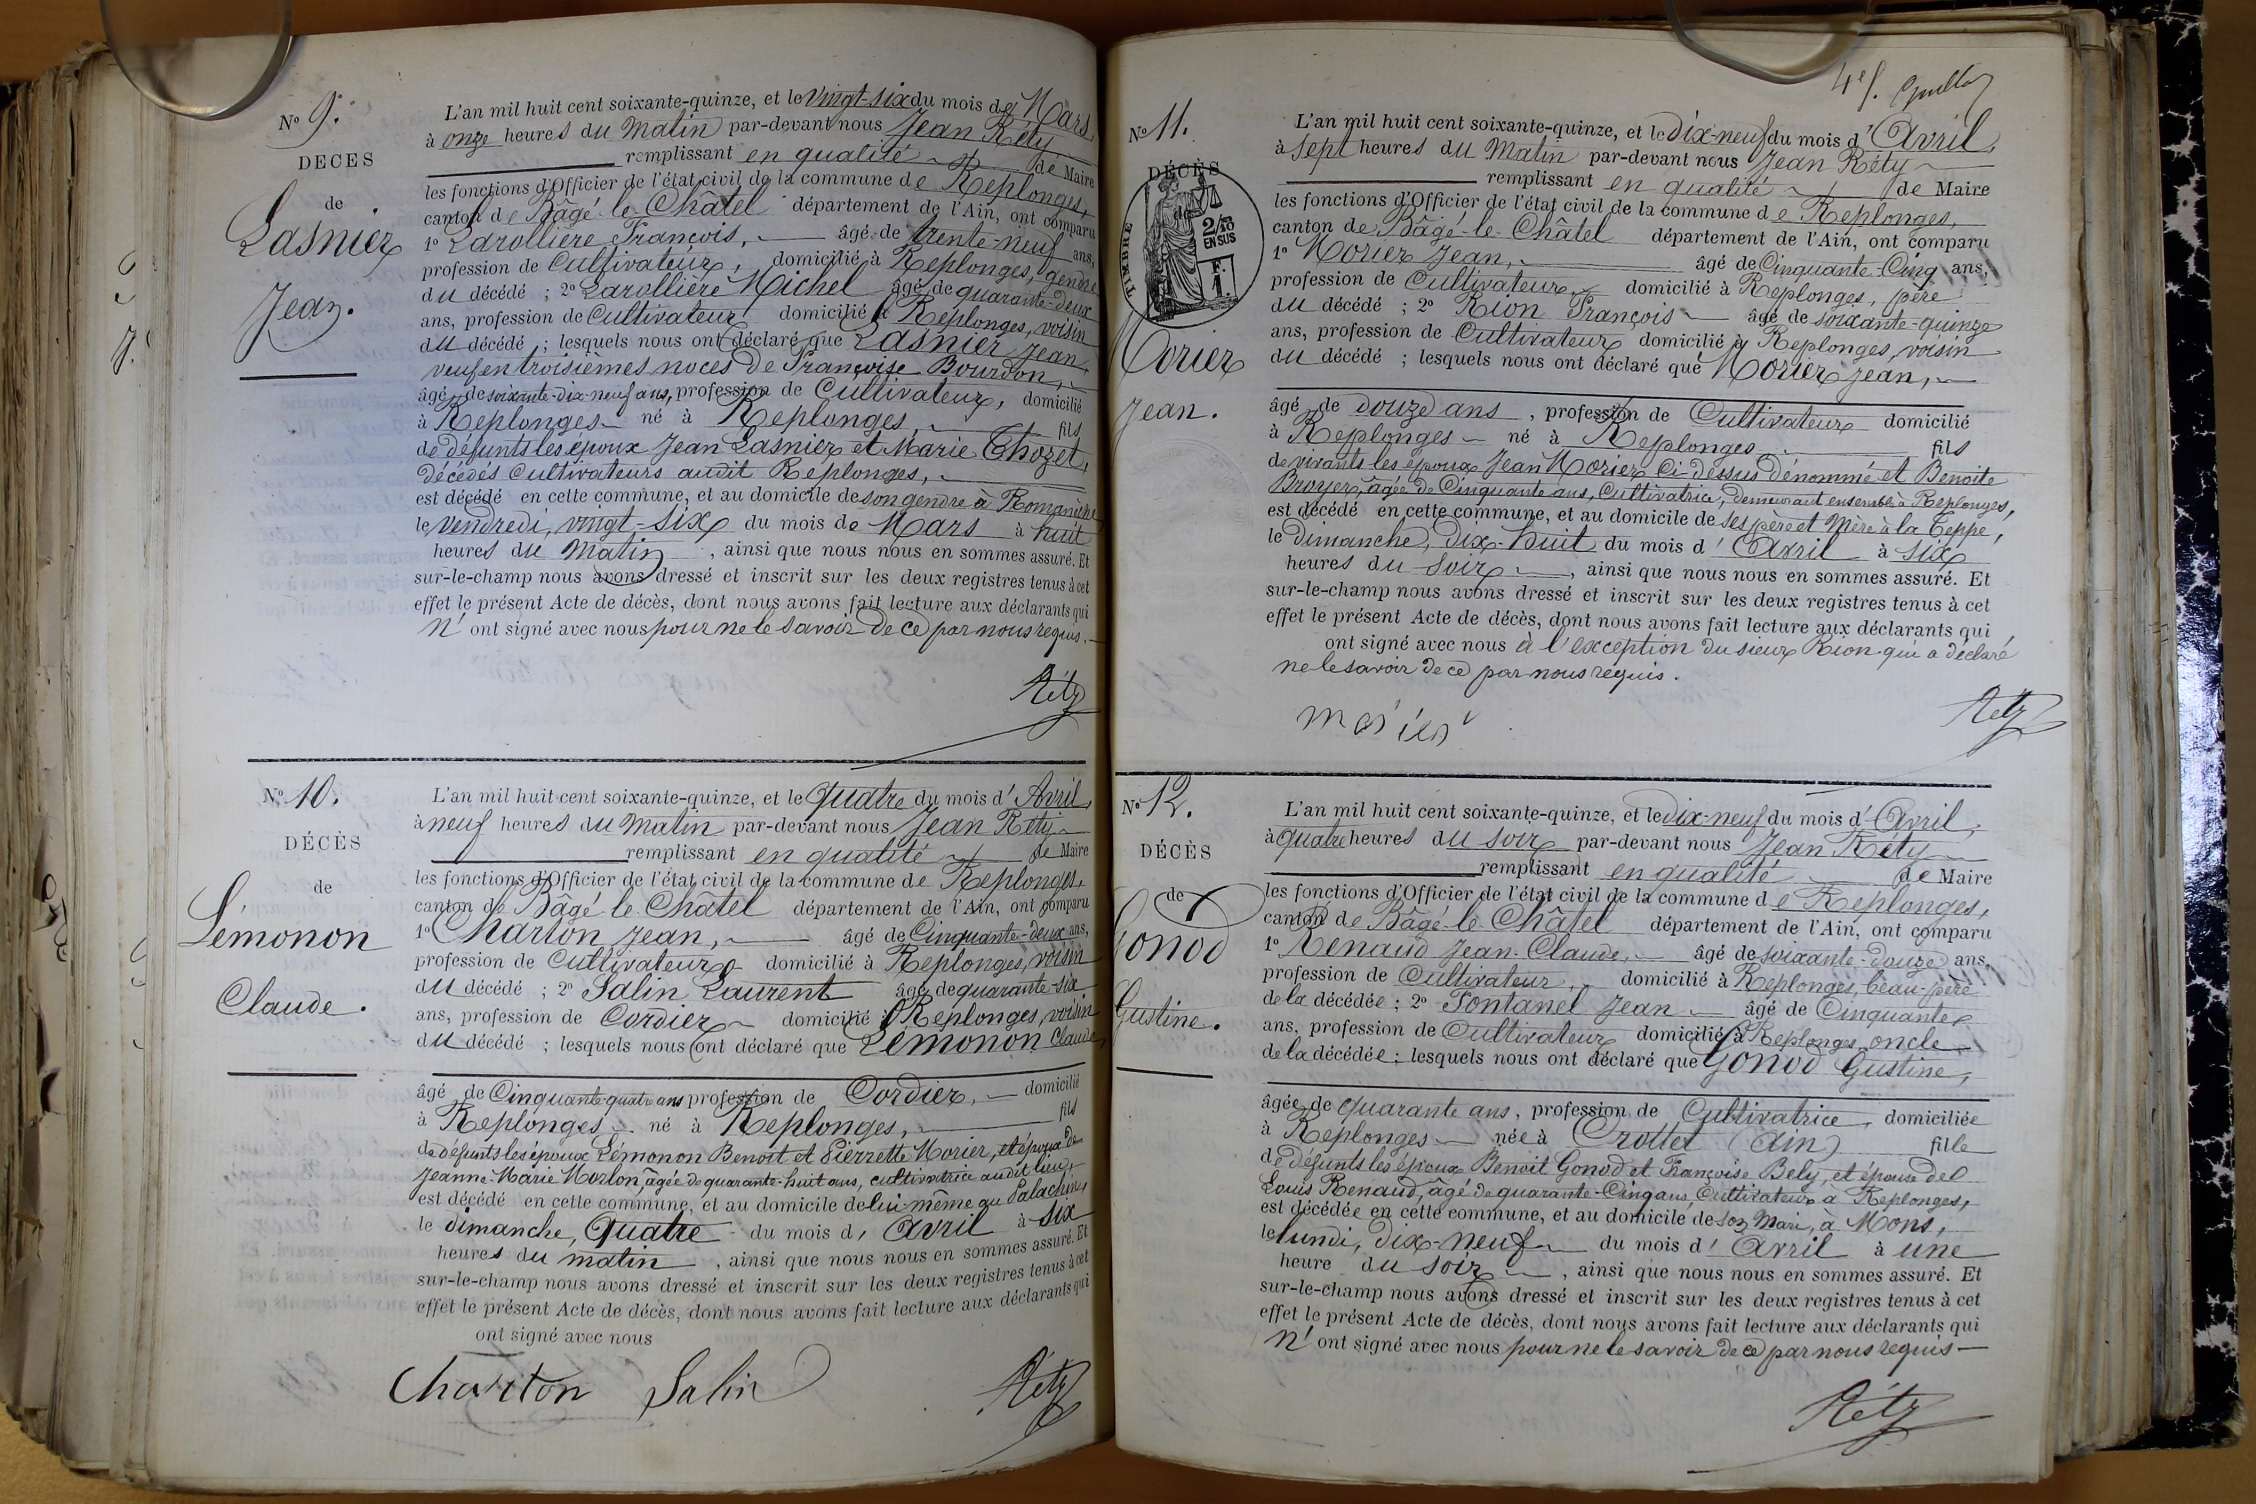 N° 9.
DÉCÈS
de
Lasnier
Jean.
L'an mil huit cent soixante-quinze, et le Vingt-six du mois de Mars,
à onze heures du Matin par-devant nous Jean Réty
remplissant en qualité de Maire
les fonctions d'Officier de l'état civil de la commune de Replonges,
canton de Bâgé-le-Châtel département de l'Ain, ont comparu
1° Larollière François, âgé de trente-neuf ans,
profession de Cultivateur, domicilié à Replonges, gendre
du décédé ; 2° Larollière Michel âgé de quarante-deux
ans, profession de Cultivateur domicilié à Replonges, voisin
du décédé ; lesquels nous ont déclaré que Lasnier Jean,
veuf en troisièmes noces de Françoise Bourdon,
âgé de soixante-dix-neuf ans, profession de Cultivateur, domicilié
à Replonges né à Replonges, fils
de défunts les époux Jean Lasnier et Marie Chozet,
décédés Cultivateurs audit Replonges,
est décédé en cette commune, et au domicile de son gendre à Romanèche
le Vendredi, vingt-six du mois de Mars à huit
heures du Matin, ainsi que nous nous en sommes assuré. Et
sur-le-champ nous avons dressé et inscrit sur les deux registres tenus à cet
effet le présent Acte de décès, dont nous avons fait lecture aux déclarants qui
n' ont signé avec nous pour ne le savoir de ce par nous requis.
Réty
N° 10.
DÉCÈS
de
Lémonon
Claude.
L'an mil huit cent soixante-quinze, et le Quatre du mois d' Avril,
à neuf heures du Matin par-devant nous Jean Réty
remplissant en qualité de Maire
les fonctions d'Officier de l'état civil de la commune de Replonges,
canton de Bâgé-le-Châtel département de l'Ain, ont comparu
1° Charton Jean, âgé de Cinquante-deux ans,
profession de Cultivateur domicilié à Replonges, voisin
du décédé ; 2° Salin Laurent âgé de quarante-six
ans, profession de Cordier domicilié à Replonges, voisin
du décédé ; lesquels nous ont déclaré que Lémonon Claude,
âgé de Cinquante-quatre ans profession de Cordier, domicilié
à Replonges né à Replonges, fils
de défunts les époux Lémonon Benoit et Pierrette Morier, et époux de
Jeanne-Marie Morlon, âgée de quarante-huit ans, cultivatrice audit lieu,
est décédé en cette commune, et au domicile de lui-même au
le dimanche, Quatre du mois d' Avril à six
heures du matin, ainsi que nous nous en sommes assuré. Et
sur-le-champ nous avons dressé et inscrit sur les deux registres tenus à cet
effet le présent Acte de décès, dont nous avons fait lecture aux déclarants qui
ont signé avec nous
Chariton Salin Réty
4e f.
N° 11.
DÉCÈS
TIMBRE
2/10
EN SUS
F.
1.
Morier
Jean.
L'an mil huit cent soixante-quinze, et le dix-neuf du mois d' Avril,
à Sept heures du Matin par-devant nous Jean Réty
remplissant en qualité de Maire
les fonctions d'Officier de l'état civil de la commune de Replonges,
canton de Bâgé-le-Châtel département de l'Ain, ont comparu
1° Morier Jean, âgé de Cinquante-Cinq ans,
profession de Cultivateur, domicilié à Replonges, père
du décédé ; 2° Rion François âgé de soixante-quinze
ans, profession de Cultivateur domicilié à Replonges, voisin
du décédé ; lesquels nous ont déclaré que Morier Jean,
âgé de douze ans, profession de Cultivateur domicilié
à Replonges né à Replonges fils
de vivants les époux Jean Morier Ci-dessus dénommé et Benoite
Broyer, âgée de Cinquante ans, Cultivatrice, demeurant ensemble à Replonges,
est décédé en cette commune, et au domicile de ses père et Mère à la Teppe,
le Dimanche, Dix-huit du mois d' Avril à six
heures du soir, ainsi que nous nous en sommes assuré. Et
sur-le-champ nous avons dressé et inscrit sur les deux registres tenus à cet
effet le présent Acte de décès, dont nous avons fait lecture aux déclarants qui
ont signé avec nous à l'exception du sieur Rion qui a déclaré
ne le savoir de ce par nous requis.
morier Réty
N° 12.
DÉCÈS
de
Gonod
Gustine.
L'an mil huit cent soixante-quinze, et le Dix-neuf du mois d' Avril,
à Quatre heures du soir par-devant nous Jean Réty
remplissant en qualité de Maire
les fonctions d'Officier de l'état civil de la commune de Replonges,
canton de Bâgé-le-Châtel département de l'Ain, ont comparu
1° Renaud Jean-Claude, âgé de soixante-douze ans,
profession de Cultivateur, domicilié à Replonges, beau-père
de la décédée ; 2° Fontanel Jean âgé de Cinquante
ans, profession de Cultivateur domicilié à Replonges, oncle
de la décédée ; lesquels nous ont déclaré que Gonod Gustine,
âgée de quarante ans, profession de Cultivatrice, domiciliée
à Replonges née à Crottet (Ain) fille
de défunts les époux Benoit Gonod et Françoise Bely, et épouse de
Louis Renaud, âgé de quarante-Cinq ans, Cultivateur à Replonges,
est décédée en cette commune, et au domicile de son Mari, à Mons,
le lundi, Dix-neuf du mois d' Avril à une
heure du soir, ainsi que nous nous en sommes assuré. Et
sur-le-champ nous avons dressé et inscrit sur les deux registres tenus à cet
effet le présent Acte de décès, dont nous avons fait lecture aux déclarants qui
n' ont signé avec nous pour ne le savoir de ce par nous requis
Réty